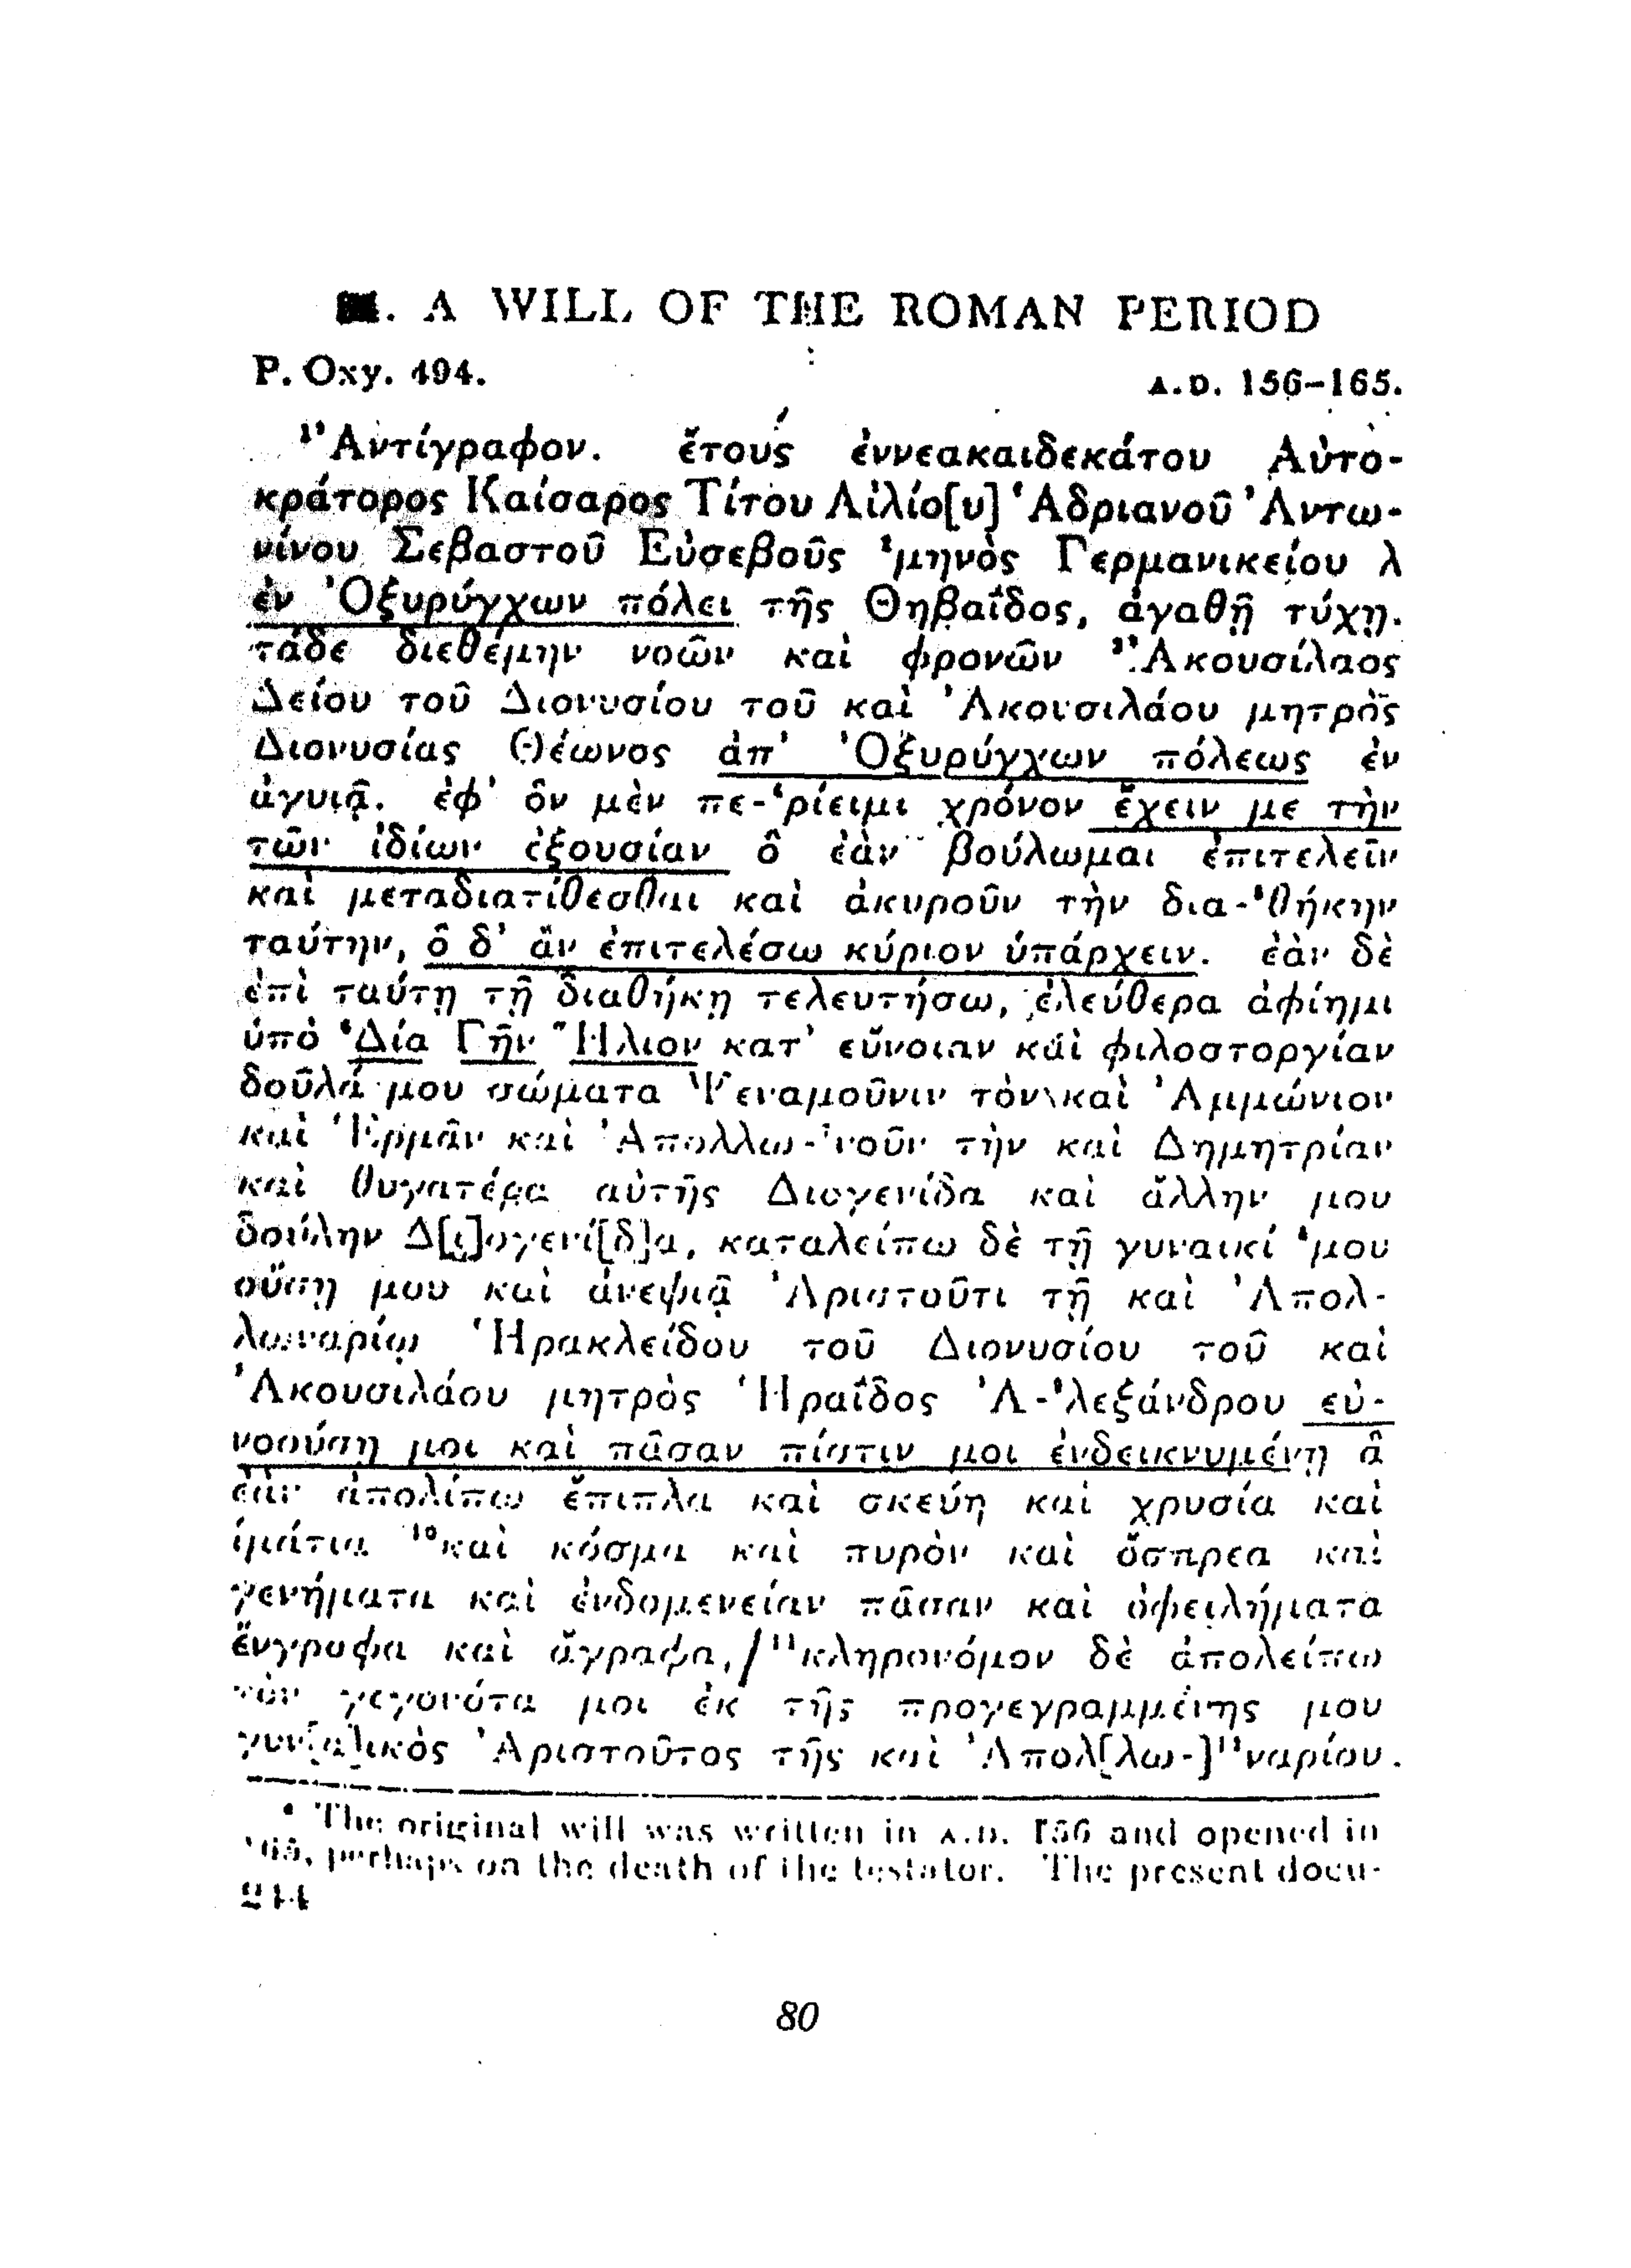 . A WILL OF THE ROMAN PERIOD
P. Oxy. 494.
A.D. 156–165.
¹᾽Αντίγραφον. ἔτους ἐννεακαιδεκάτου Αὐτο-
κράτορος Καίσαρος Τίτου Αἰλίο[υ] Ἁδριανοῦ Ἀντω-
νίνου Σεβαστοῦ Εὐσεβοῦς ²μηνὸς Γερμανικείου λ
ἐν Ὀξυρύγχων πόλει τῆς Θηβαΐδος, ἀγαθῇ τύχῃ.
τάδε διεθέμην νοῶν καὶ φρονῶν ³Ἀκουσίλαος
Δείου τοῦ Διονυσίου τοῦ καὶ Ἀκουσιλάου μητρὸς
Διονυσίας Θέωνος ἀπ’ Ὀξυρύγχων πόλεως ἐν
ἀγυιᾷ. ἐφ’ ὃν μὲν πε-⁴ρίειμι χρόνον ἔχειν με τὴν
τῶν ἰδίων ἐξουσίαν ὃ ἐὰν βούλωμαι ἐπιτελεῖν
καὶ μεταδιατίθεσθαι καὶ ἀκυροῦν τὴν δια-⁵θήκην
ταύτην, ὃ δ’ ἂν ἐπιτελέσω κύριον ὑπάρχειν. ἐὰν δὲ
ἐπὶ ταύτῃ τῇ διαθήκῃ τελευτήσω, ἐλεύθερα ἀφίημι
ὑπὸ ⁶Δία Γῆν Ἥλιον κατ’ εὔνοιαν καὶ φιλοστοργίαν
δοῦλά μου σώματα Ψεναμοῦνιν τὸν καὶ Ἀμμώνιον
καὶ Ἑρμᾶν καὶ Ἀπολλω-⁷νοῦν τὴν καὶ Δημητρίαν
καὶ θυγατέρα αὐτῆς Διογενίδα καὶ ἄλλην μου
δούλην Δ[ι]ογενί[δ]α, καταλείπω δὲ τῇ γυναικί ⁸μου
οὔσῃ μου καὶ ἀνεψιᾷ Ἀριστοῦτι τῇ καὶ Ἀπολ-
λωναρίῳ Ἡρακλείδου τοῦ Διονυσίου τοῦ καὶ
Ἀκουσιλάου μητρὸς Ἡραΐδος Ἀ-⁹λεξάνδρου εὐ-
νοούσῃ μοι καὶ πᾶσαν πίστιν μοι ἐνδεικνυμένῃ ἃ
ἐὰν ἀπολίπω ἔπιπλα καὶ σκεύη καὶ χρυσία καὶ
ἱμάτια ¹⁰καὶ κόσμα καὶ πυρὸν καὶ ὄσπρεα καὶ
γενήματα καὶ ἐνδομενείαν πᾶσαν καὶ ὀφειλήματα
ἔνγραφα καὶ ἄγραφα, / ¹¹κληρονόμον δὲ ἀπολείπω
τὸν γεγονότα μοι ἐκ τῆς προγεγραμμένης μου
γυν[α]ικὸς Ἀριστοῦτος τῆς καὶ Ἀπολ[λω-]¹²ναρίου.
ᵃ The original will was written in A.D. 156 and opened in
165, perhaps on the death of the testator. The present docu-
244
80